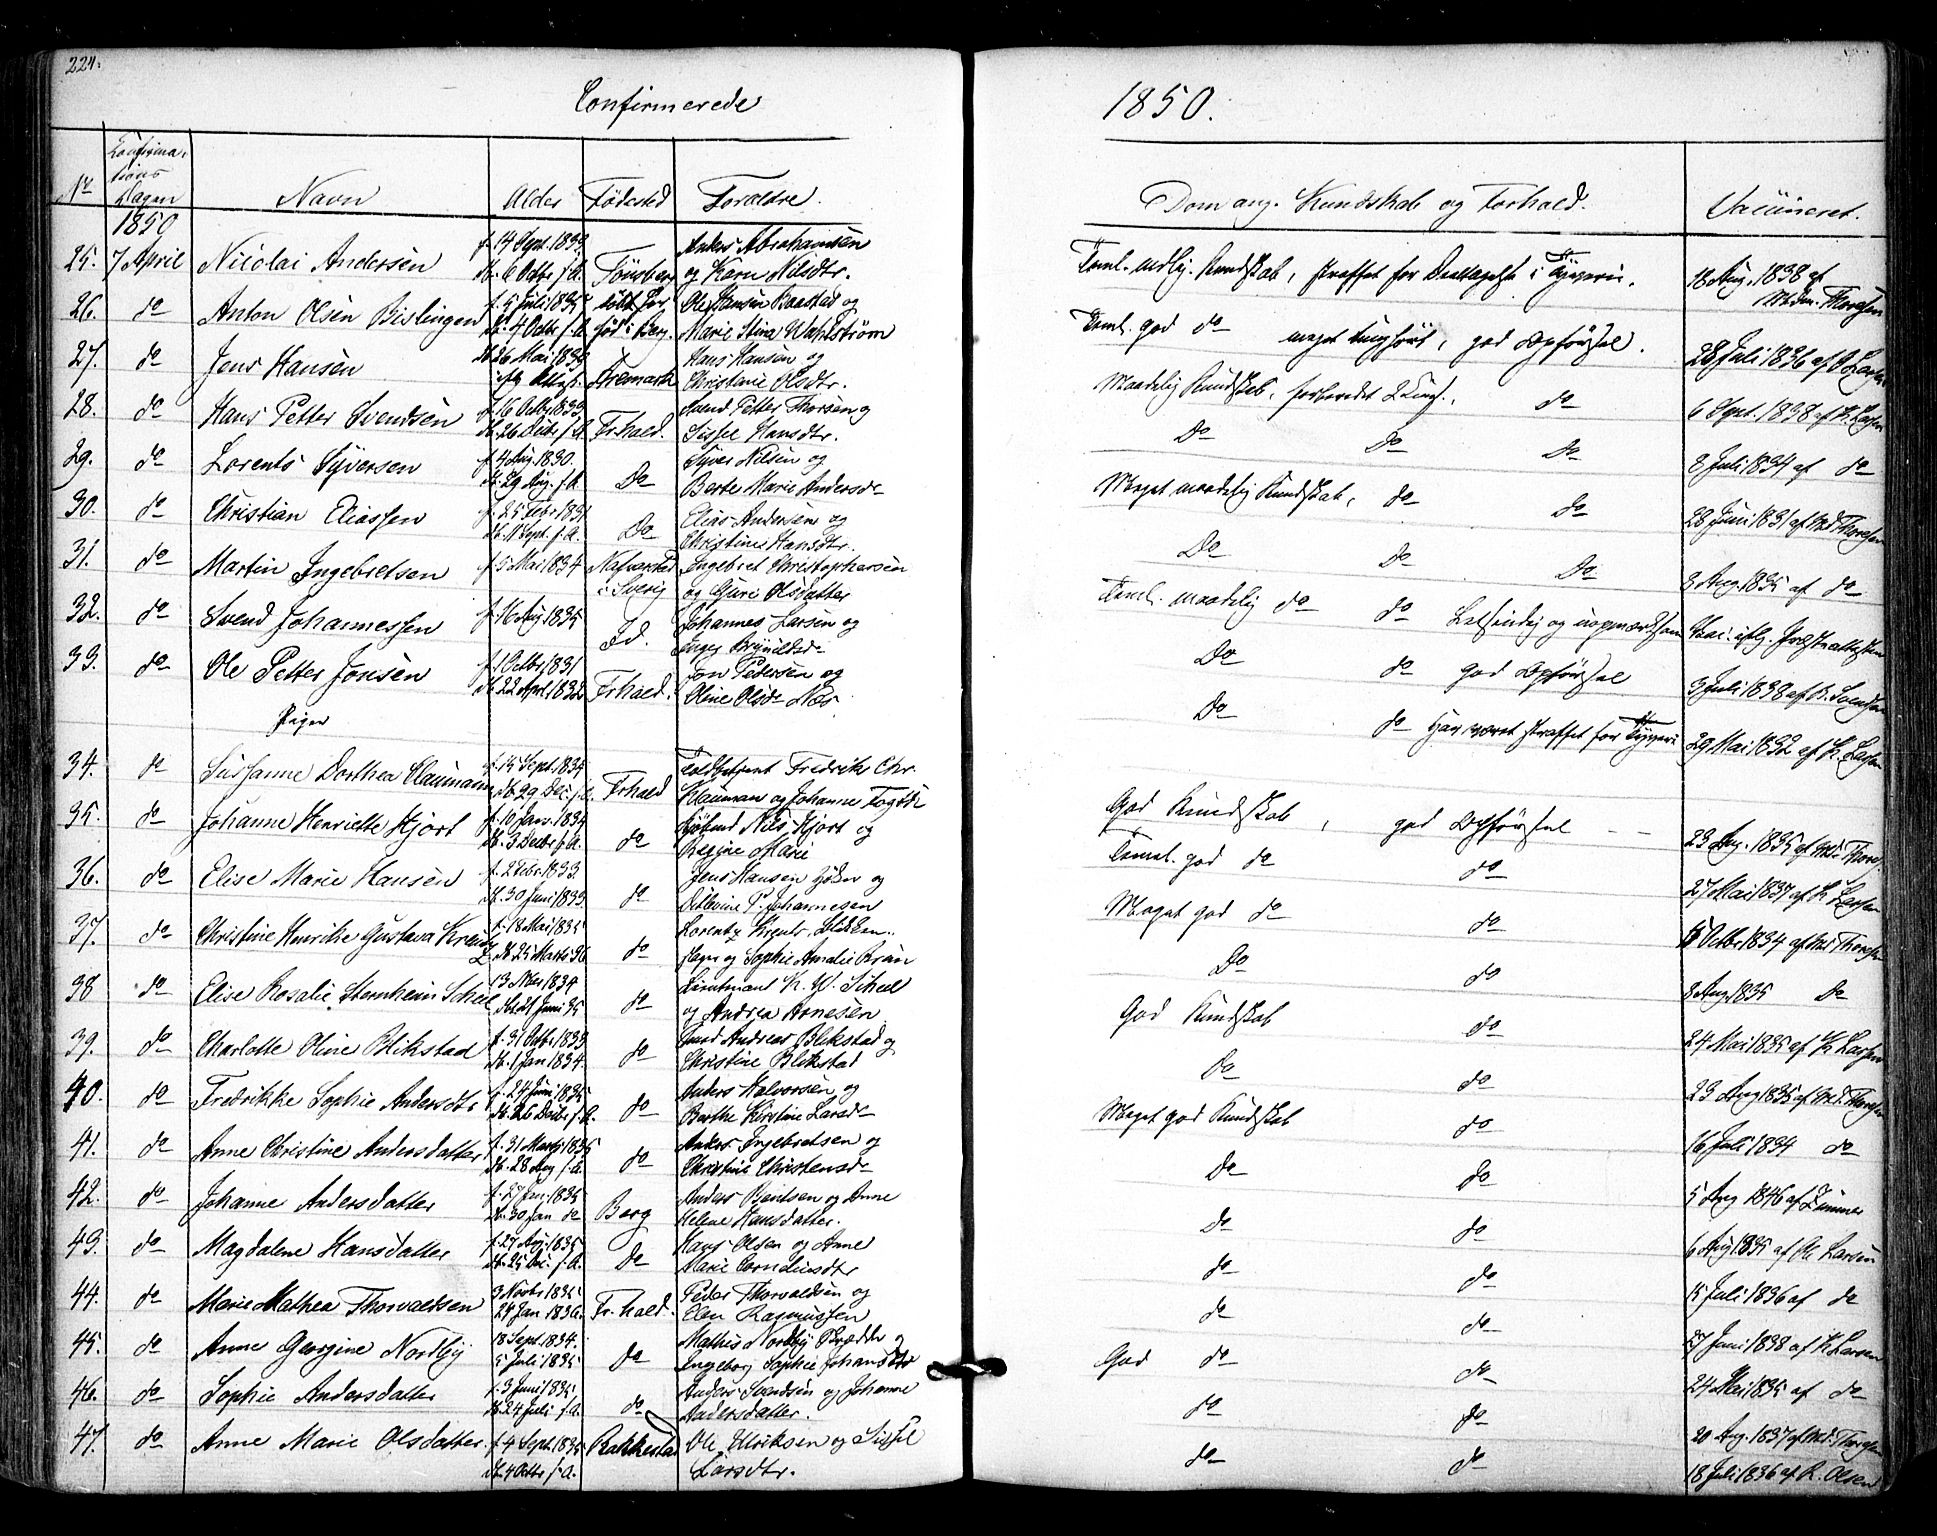 224.
Confirmerede
1850.
No
Confirma-
tions
Dagen
Navn
Alder
Fødested
Forældre.
Dom ang. Kundskab og Forhold.
Vaccineret.
1850
25. 7 April Nicolai Andersen f. 14 Sept. 1833 Anders Abrahamsen
db. 6 Octbr f. A. Tønsberg og Karn Nilsdtr.
Teml. mdlg. Kundskab, straffet for Deeltagelse i Tyverie. 18 Aug. 1838 af
Thoresen
26. do Anton Olsen Bislingen f. 5 Juli 1835 Ole Hansen Baastad og
db. 4 Octbr f. A. født i Berg. Marie Stina Wahlstrøm
Teml. god do meget tunghørt, god Opførsel. 28 Juli 1836 af O. Larsen
27. do Jens Hansen 26 Mai 1833 Hans Hansen og
Aremark Christine Olsdtr.
Maadelig Kundskab, do 6 Sept. 1838 af K. Larsen
28. do Hans Petter Svendsen f. 16 Octbr 1833 Svend Petter Thorsen og
db. 26 Decbr f. A. Frhald. Sissel Hansdtr.
Do Do Do 8 Juli 1834 af do
29. do Lorents Syversen f. 4 Aug. 1830. Syver Nilsen og
db. 29 Aug. f. A. Do Berte Marie Andersdr
Meget maadelig Kundskab, do do 28 Juni 1831 af Md. Thoresen
30. do Christian Eliassen f. 25 Febr 1831 Elias Andersen og
db. 11 Sept. f. A. Do Christine Hansdtr.
Do Do Do 3 Aug. 1835 af do
31. do Martin Ingebretsen f. 5 Mai 1834 Ingebret Christophersen
i Sverig og Guri Olsdatter
Teml. maadelig do do Letsindig og uopmærksom Vac. iflg. Præsteattesten
32. do Svend Johannessen f. 16 Aug 1835 Johannes Larsen og
Id. Inger Brynildsdr
Do do God Opførsel 3 Juli 1838 af K. Svensen
33. do Ole Petter Jonsen f. 1 Octbr 1831 Jon Pedersen og
db. 22 April 1832 Frhald. Oline Olsdr Næs
Do do Har været straffet for Tyverie 29 Mai 1832 af K. Larsen
Piger
34. do Sussanne Dorthea Claumann f. 15 Sept. 1834 Toldbetjent Fredrik Chr.
db. 29 Dec. f. A. Frhald Klauman og Johanne
God Kundskab, god Opførsel 23 Aug. 1835 af Md. Thore.
35. do Johanne Henriette Hjort f. 10 Janv. 1834 Nils Hjort og
db. 3 Decbr f. A. do Regine Marie
Teml. god do do 27 Mai 1837 af K Larsen
36. do Elise Marie Hansen f. 2 Febr. 1833 Jens Hansen og
db. 30 Juni 1833 do P. Johannesen
Meget god do do Octbr 1834 af Md. Thoresen
37. do Christine Henrike Gustava Krentz f. 18 Mai 1835 Lorentz Krentz,
db. 25 Marts 36 do og Sophie Amalie Bruun
Do do 3 Aug. 1835 Do
38 do Elise Rosalie Sternheim Scheel 13 1834 Lieutnant K. W. Scheel
db. 21 Juni 35 do og Andrea Arnesen
God Kundskab do 24 Mai 1835 af K Larsen
39. do Charlotte Oline Blikstad f. 31 Octbr 1833 Andreas Blikstad og
db. 1 Jan 1834. do Christine Blikstad
Do do 23 Aug 1835 af Md. Thoresen
40. do Fredrikke Sophie Andersdtr f. 24 Juni 1835 Anders Halvorsen og
db. 26 Decbr f. A. do Berthe Kirstine Larsdr
Meget god Kundskab do 16 Juli 1834 do
41. do Anne Christine Andersdatter f. 31 Marts 1835 Anders Ingebretsen og
db. 28 Aug f. A. do Christine Christensdr
Do Do 5 Aug 1846 af Zimmer
42. do Johanne Andersdatter f. 27 Jan. 1835 Anders Bentsen og Anne
db. 30 Jan do Berg Helene Hansdatter.
Do do 6 Aug 1835 af Ole Larsen
43. do Magdalene Hansdatter f. 27 Aug. 1835 Hans Olsen og Anne
db. 25 Dec. f. A. Do Marie Corneliusdtr
do do 15 Juli 1836 af do
44. do Marie Mathea Thorvaldsen 3 Novbr 1835 Peder Thorvaldsen og
24 Jan 1836. Fr.hald. Elen Rasmussen
do do 27 Juni 1838 af K Larsen
45. do Anne Georgine Nordby 18 Sept. 1834. Mathis Nordby og
5 Juli 1835 Do Ingeborg Sophie Johansdtr
God do do 24 Mai 1835 af do
46. do Sophie Andersdatter f. 3 Juni 1835 Anders Svendsen og Johanne
db. 24 Juli f. A. do Andersdatter.
do do 20 Aug. 1837 af Md. Thoresen
47. do Anne Marie Olsdatter. f. 4 Sept 1835 Rakkestad Ole Ulriksen og Sissel
db. 4 Octbr f. A. Larsdtr.
do do 18 Juli 1836 af R. Olsen